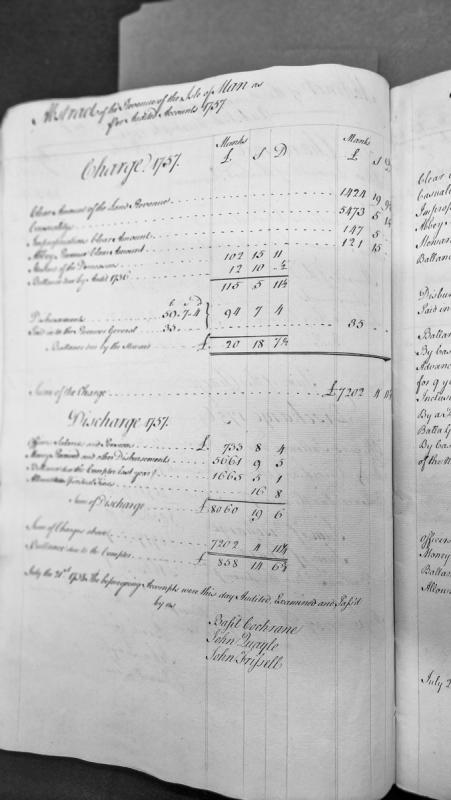 Abstract of the Revenue of the Isle of Man as
per Audited Accounts 1757
Charge. 1757.
Manks
£ S D
Manks
£ S D
Clear Amount of the Land Revenue 1424 19
Casualties 5473 5
Impropriations Clear Amount 147 5
Abbey Revenue Clear Amount 121 15
of the Demesnes 102 15 11
Ballance due by Audit 1756 12 10
115 5 11½
£ S D
Disbursements 59..7..4 } 94 7 4
Paid in to the Receiver General 35 .. 35
Ballance due by the £ 20 18 7½
Sum of the Charge £ 7202 4 11½
Discharge 1757.
Officers Salaries and Pensions £ 733 8 4
Money Remitted and other Disbursements 5661 9 5
Ballance due the Comptter last year 1665 5 1
Allowances 16 8
Sum of Discharge £ 8060 19 6
Sum of Charge above 7202 4 11½
Ballance due to the Comptter £ 858 14 6½
July the 21st 1758 the beforegoing Accompts were this day Audited, Examined and Pass'd
by us
Basl Cochrane
John Quayle
John Frissell
Clear
Casual
Improp
Abbey
Ballan
Disbu
Paid in
Ballan
By bas
Advanc
for 9 y
Inclus
By a
Balla
By bas
of the
officers
Money
Ballan
Allow
July 2